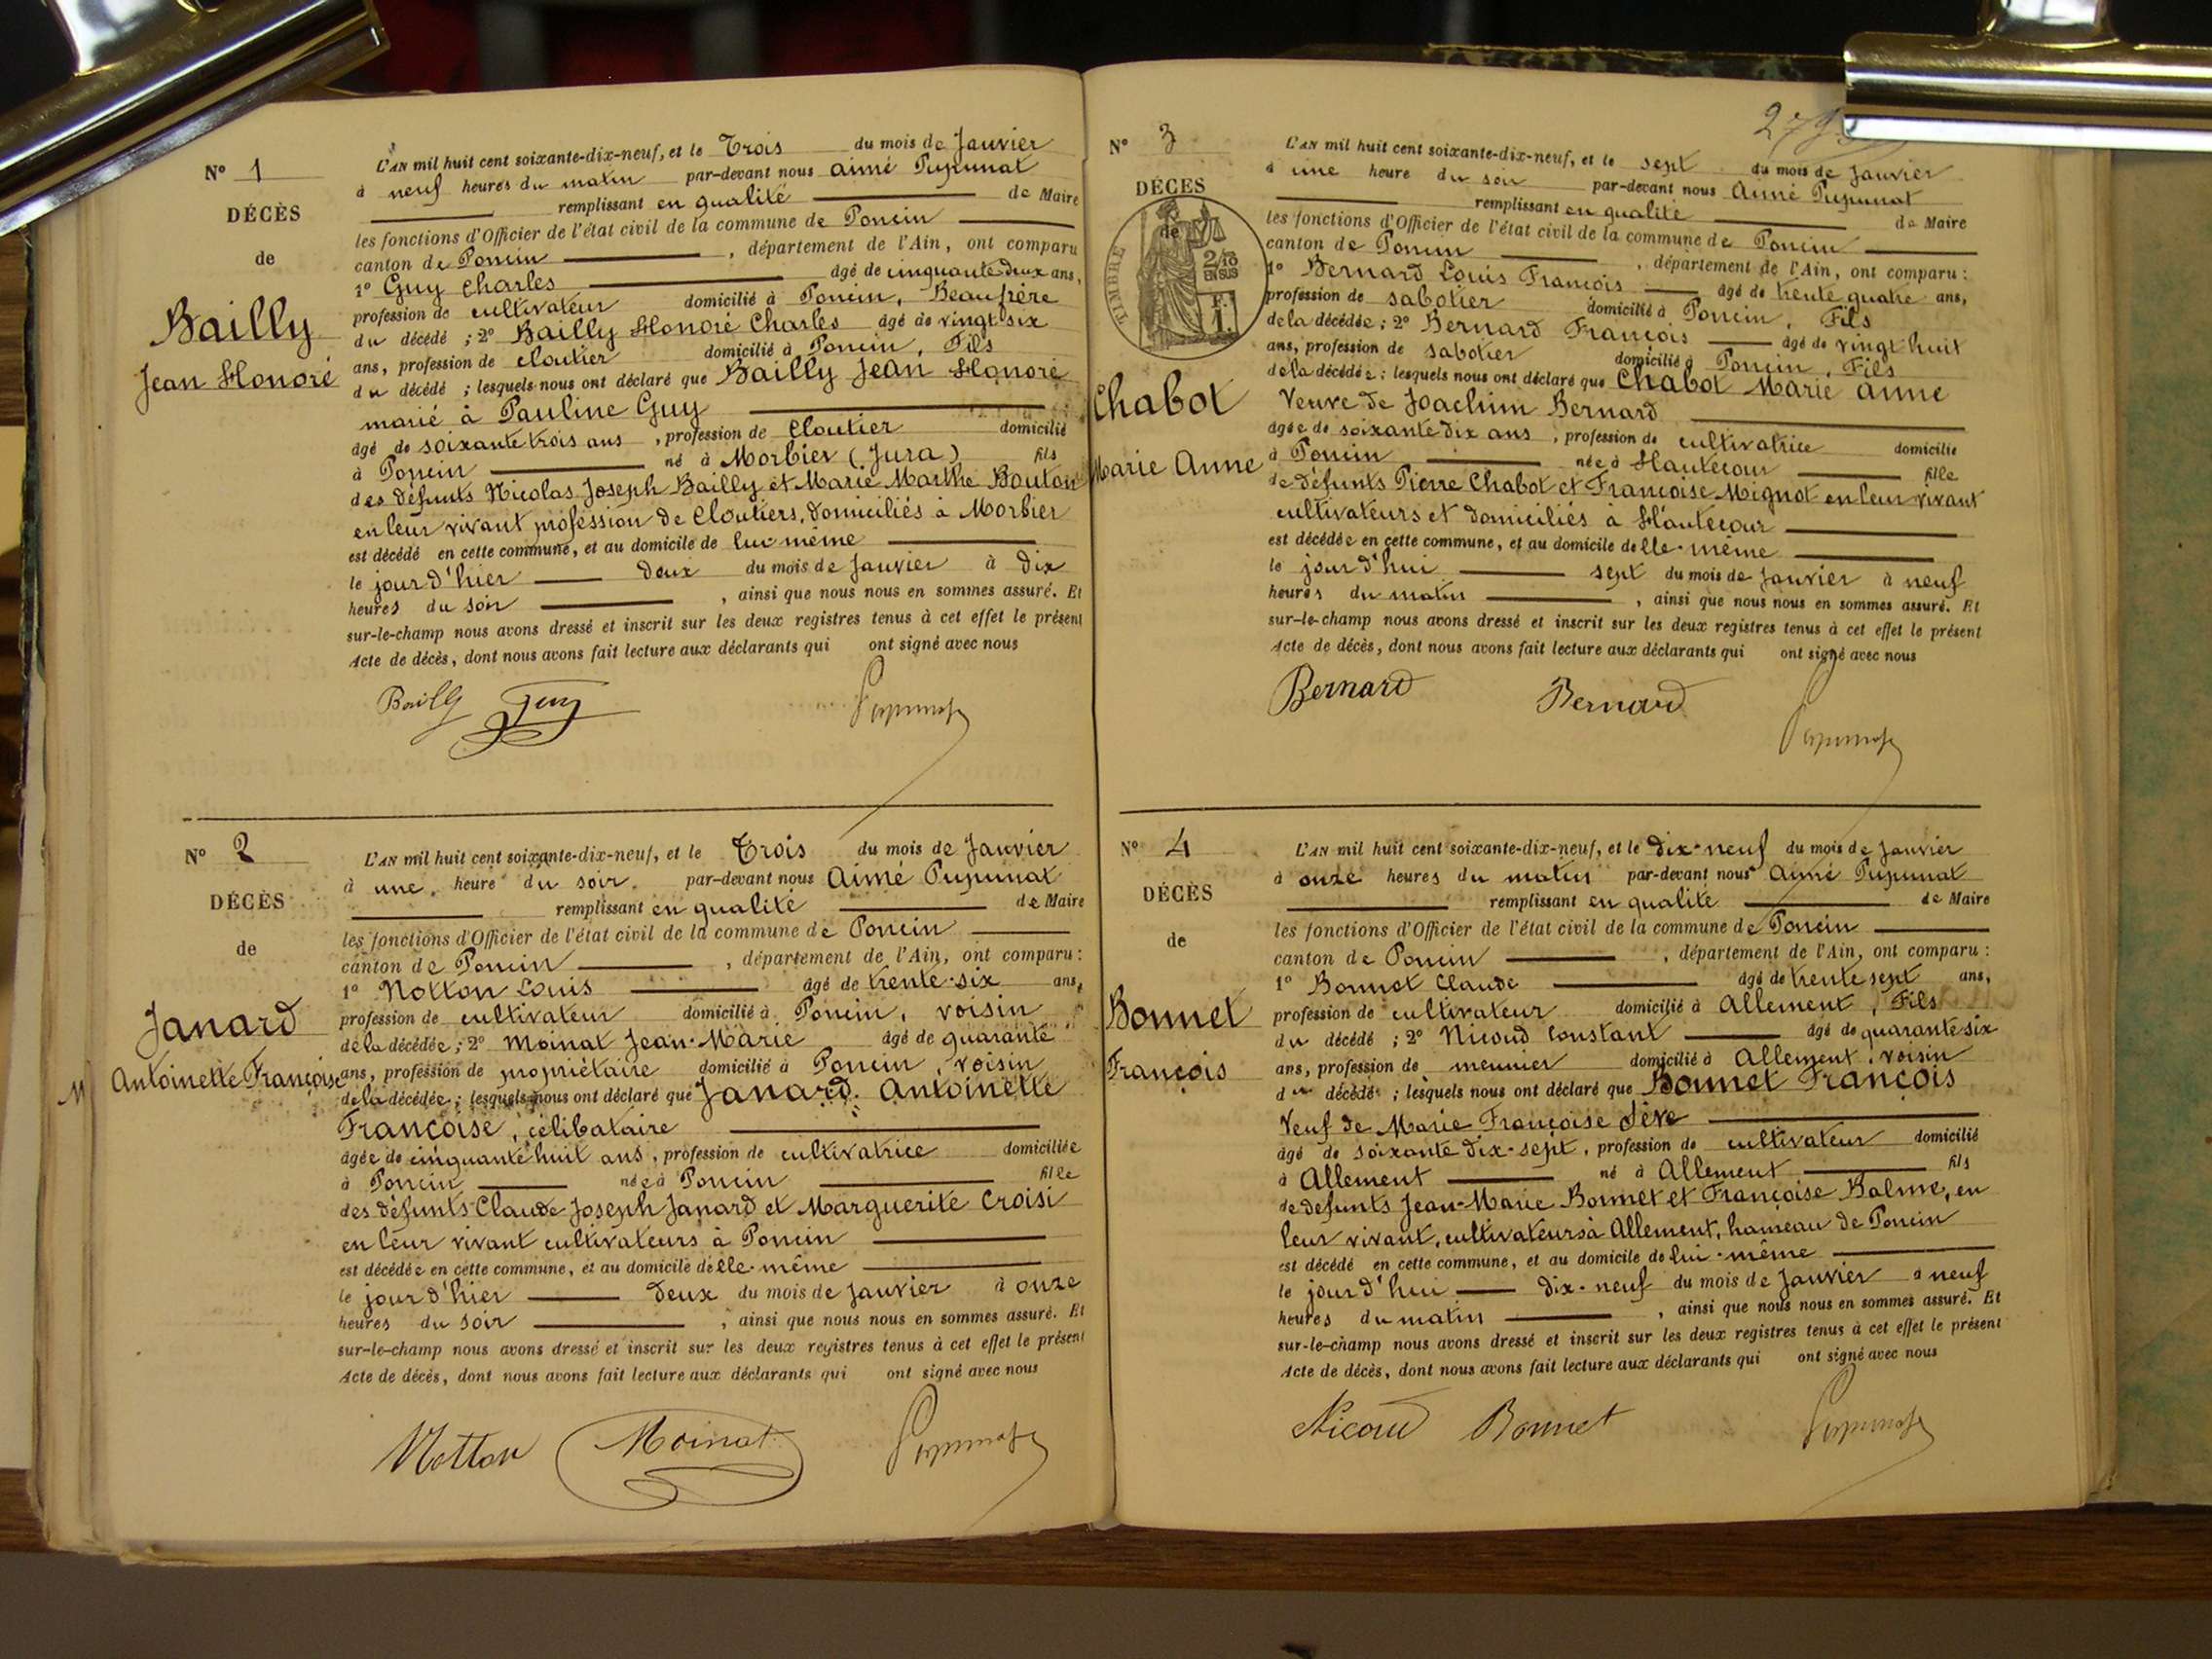 N° 1
DÉCÈS
de
Bailly
Jean Honoré
L'AN mil huit cent soixante-dix-neuf, et le Trois du mois de Janvier
à neuf heures du matin par-devant nous Aimé Pupunat
remplissant en qualité de Maire
les fonctions d'Officier de l'état civil de la commune de Poncin
canton de Poncin , département de l'Ain, ont comparu
1° Guy Charles âgé de cinquante deux ans,
profession de cultivateur domicilié à Poncin, Beaufrère
du décédé ; 2° Bailly Honoré Charles âgé de vingt six
ans, profession de cloutier domicilié à Poncin, Fils
du décédé ; lesquels nous ont déclaré que Bailly Jean Honoré
marié à Pauline Guy
âgé de soixante trois ans , profession de Cloutier domicilié
à Poncin né à Morbier (Jura) fils
des défunts Nicolas Joseph Bailly et Marie Marthe Bouton
en leur vivant profession de Cloutiers, domiciliés à Morbier
est décédé en cette commune, et au domicile de lui même
le jour d'hier deux du mois de Janvier à dix
heures du soir , ainsi que nous nous en sommes assuré. Et
sur-le-champ nous avons dressé et inscrit sur les deux registres tenus à cet effet le présent
Acte de décès, dont nous avons fait lecture aux déclarants qui ont signé avec nous
Bailly Guy Pupunat
N° 2
DÉCÈS
de
Janard
Antoinette Françoise
M
L'AN mil huit cent soixante-dix-neuf, et le Trois du mois de Janvier
à une heure du soir. par-devant nous Aimé Pupunat
remplissant en qualité de Maire
les fonctions d'Officier de l'état civil de la commune de Poncin
canton de Poncin , département de l'Ain, ont comparu :
1° Notton Louis âgé de trente-six ans,
profession de cultivateur domicilié à Poncin, voisin
de la décédée ; 2° Moinat Jean-Marie âgé de quarante
ans, profession de propriétaire domicilié à Poncin, voisin
de la décédée ; lesquels nous ont déclaré que Janard Antoinette
Françoise, célibataire
âgée de cinquante huit ans , profession de cultivatrice domiciliée
à Poncin née à Poncin fille
des défunts Claude Joseph Janard et Marguerite Croisi
en leur vivant cultivateurs à Poncin
est décédée en cette commune, et au domicile d'elle-même
le jour d'hier deux du mois de Janvier à onze
heures du soir , ainsi que nous nous en sommes assuré. Et
sur-le-champ nous avons dressé et inscrit sur les deux registres tenus à cet effet le présent
Acte de décès, dont nous avons fait lecture aux déclarants qui ont signé avec nous
Notton Moinat Pupunat
N° 3
DÉCÈS
de
TIMBRE
2/10
EN SUS
F.
1.
Chabot
Marie Anne
L'AN mil huit cent soixante-dix-neuf, et le sept du mois de Janvier
à une heure du soir par-devant nous Aimé Pupunat
remplissant en qualité de Maire
les fonctions d'Officier de l'état civil de la commune de Poncin
canton de Poncin , département de l'Ain, ont comparu :
1° Bernard Louis François âgé de trente quatre ans,
profession de sabotier domicilié à Poncin, Fils
de la décédée ; 2° Bernard François âgé de vingt huit
ans, profession de sabotier domicilié à Poncin, Fils
de la décédée ; lesquels nous ont déclaré que Chabot Marie Anne
Veuve de Joachim Bernard
âgée de soixante dix ans , profession de cultivatrice domicilié
à Poncin née à Hautecour fille
de défunts Pierre Chabot et Françoise Mignot en leur vivant
cultivateurs et domiciliés à Hautecour
est décédée en cette commune, et au domicile d'elle-même
le jour d'hui sept du mois de Janvier à neuf
heures du matin , ainsi que nous nous en sommes assuré. Et
sur-le-champ nous avons dressé et inscrit sur les deux registres tenus à cet effet le présent
Acte de décès, dont nous avons fait lecture aux déclarants qui ont signé avec nous
Bernard Bernard Pupunat
N° 4
DÉCÈS
de
Bonnet
François
L'AN mil huit cent soixante-dix-neuf, et le dix-neuf du mois de Janvier
à onze heures du matin par-devant nous Aimé Pupunat
remplissant en qualité de Maire
les fonctions d'Officier de l'état civil de la commune de Poncin
canton de Poncin , département de l'Ain, ont comparu :
1° Bonnet Claude âgé de trente sept ans,
profession de cultivateur domicilié à Allement, Fils
du décédé ; 2° Nicoud Constant âgé de quarante six
ans, profession de meunier domicilié à Allement, voisin
du décédé ; lesquels nous ont déclaré que Bonnet François
Veuf de Marie Françoise Sève
âgé de soixante dix-sept , profession de cultivateur domicilié
à Allement né à Allement fils
de défunts Jean-Marie Bonnet et Françoise Balme, en
leur vivant, cultivateurs à Allement, hameau de Poncin
est décédé en cette commune, et au domicile de lui-même
le jour d'hui dix-neuf du mois de Janvier à neuf
heures du matin , ainsi que nous nous en sommes assuré. Et
sur-le-champ nous avons dressé et inscrit sur les deux registres tenus à cet effet le présent
Acte de décès, dont nous avons fait lecture aux déclarants qui ont signé avec nous
Nicoud Bonnet Pupunat